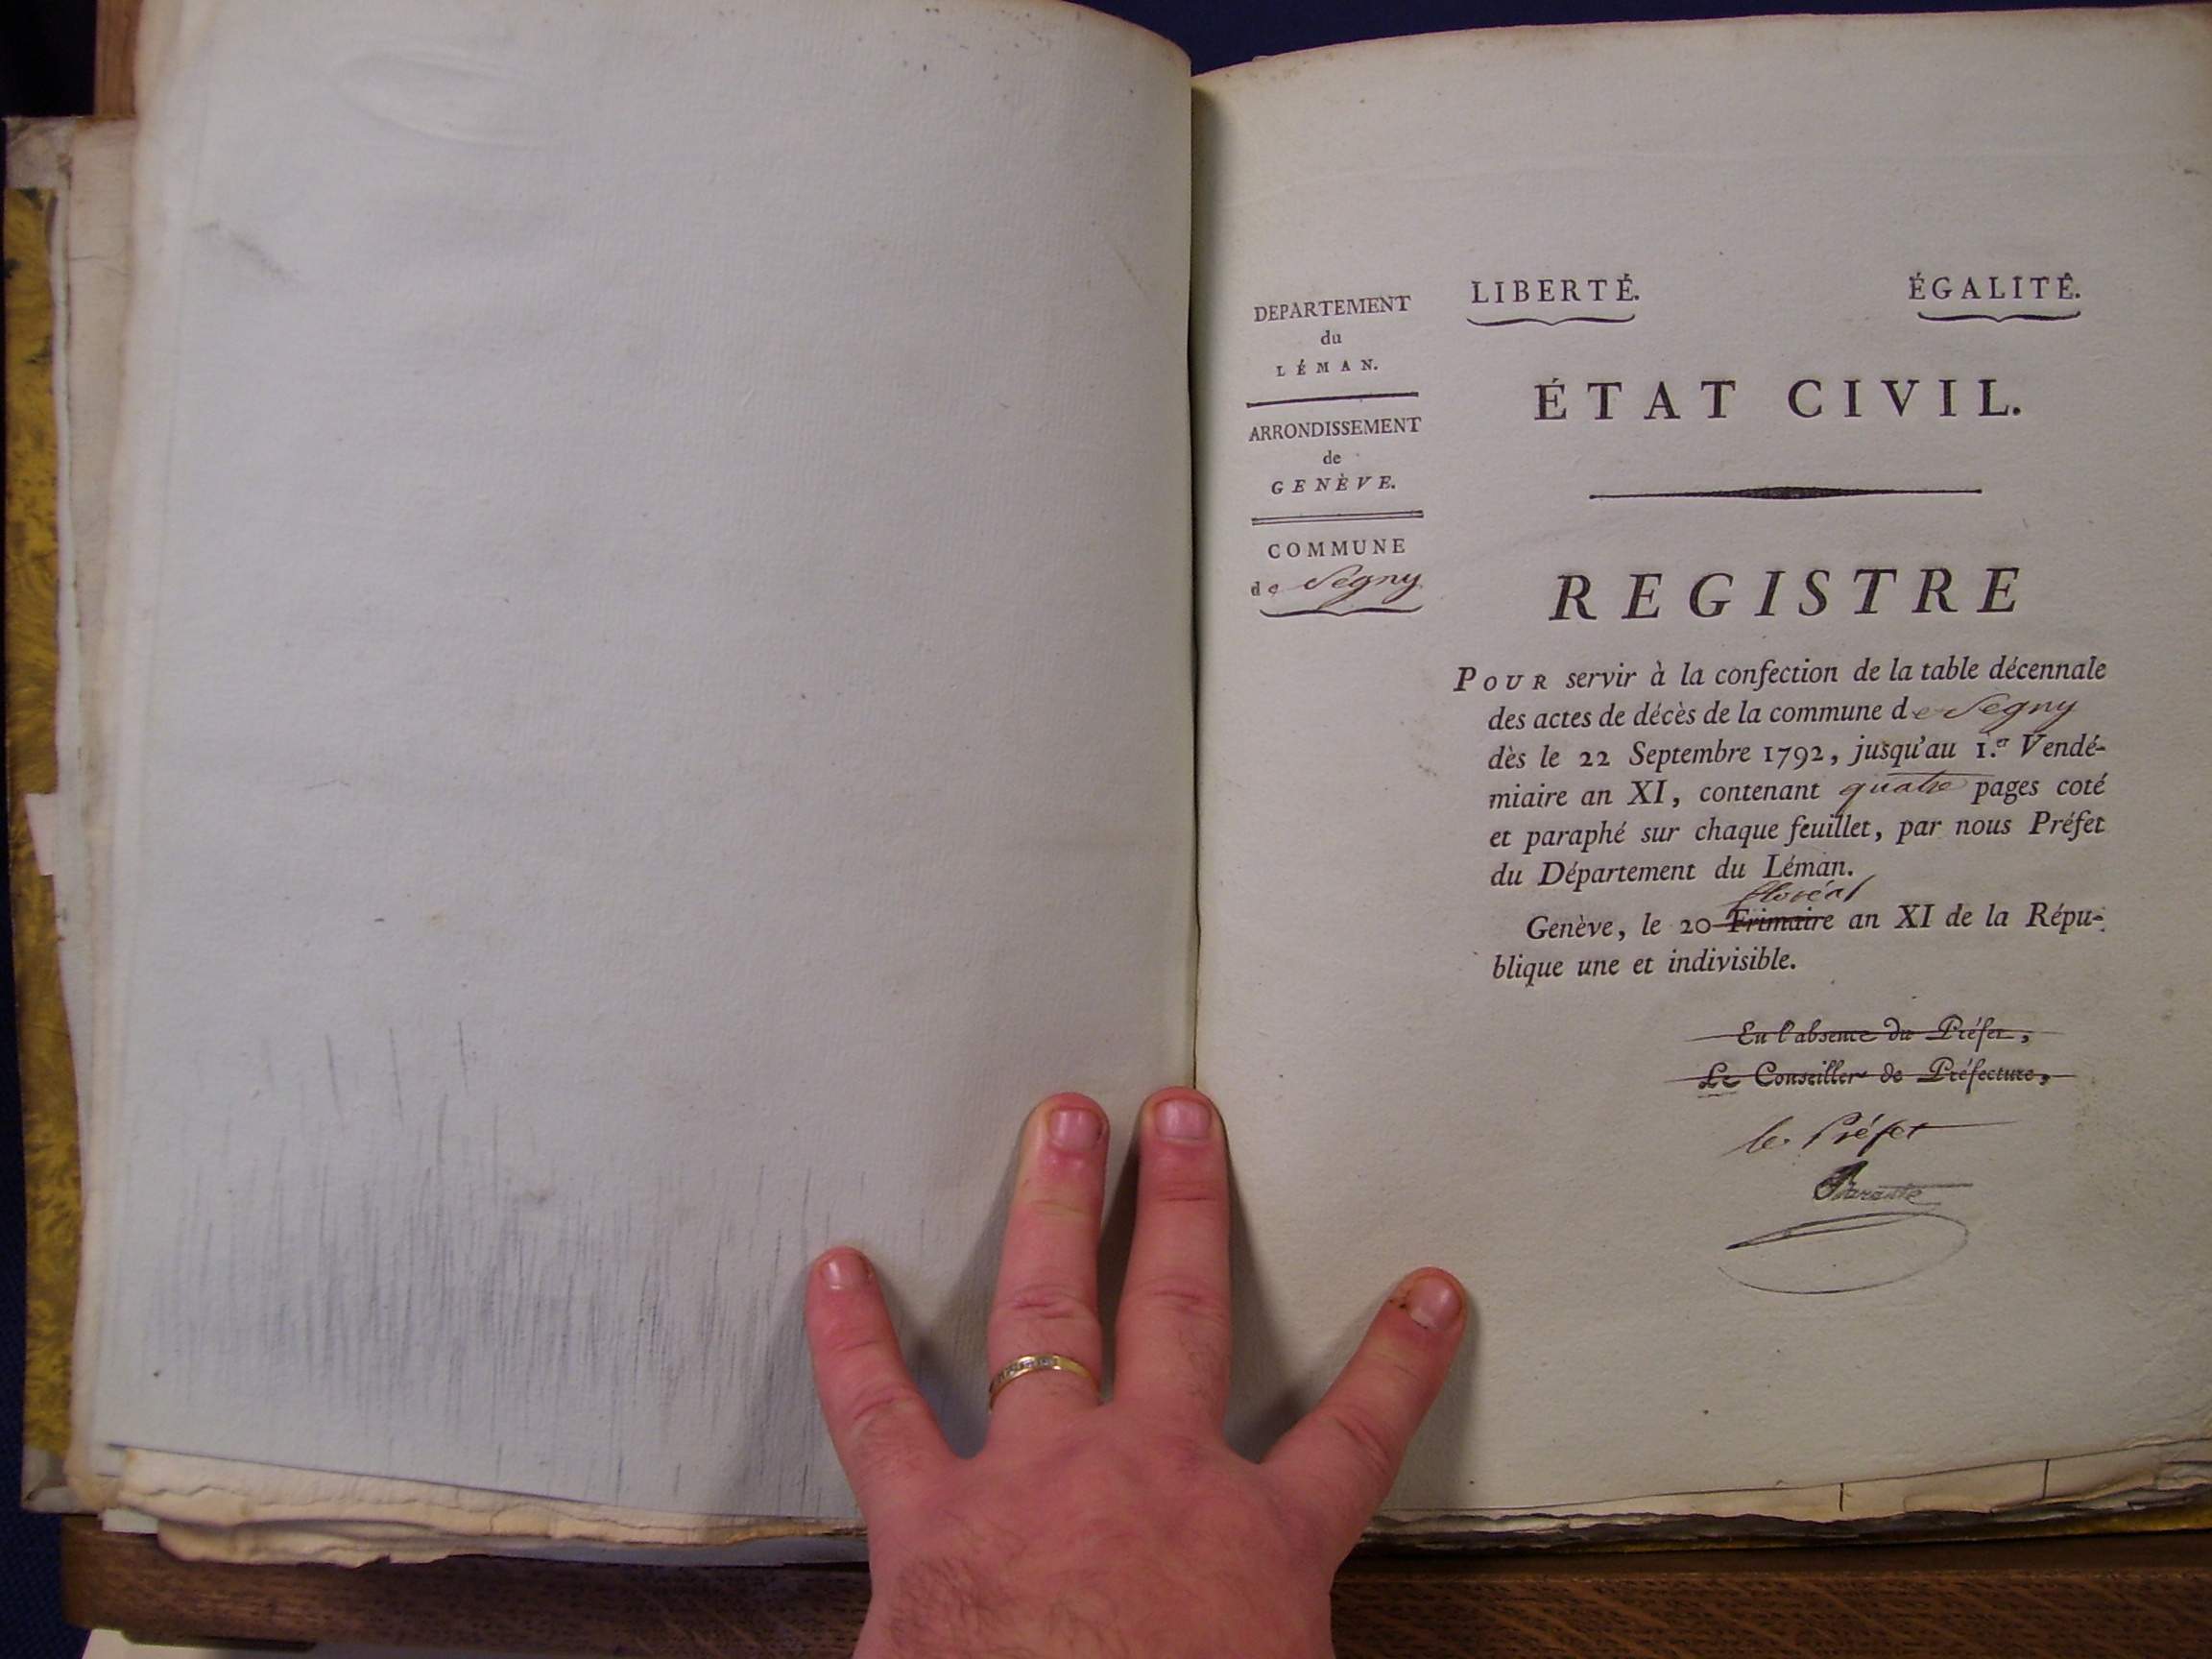 DEPARTEMENT
du
LÉMAN.
ARRONDISSEMENT
de
GENÈVE.
COMMUNE
de Segny
LIBERTÉ. ÉGALITÉ.
ÉTAT CIVIL.
REGISTRE
POUR servir à la confection de la table décennale
des actes de décès de la commune de Segny
dès le 22 Septembre 1792, jusqu'au 1.er Vendé-
miaire an XI, contenant quatre pages coté
et paraphé sur chaque feuillet, par nous Préfet
du Département du Léman.
floréal
Genève, le 20 Frimaire an XI de la Répu-
blique une et indivisible.
En l'absence du Préfet,
Le Conseiller de Préfecture,
le Préfet
Barante